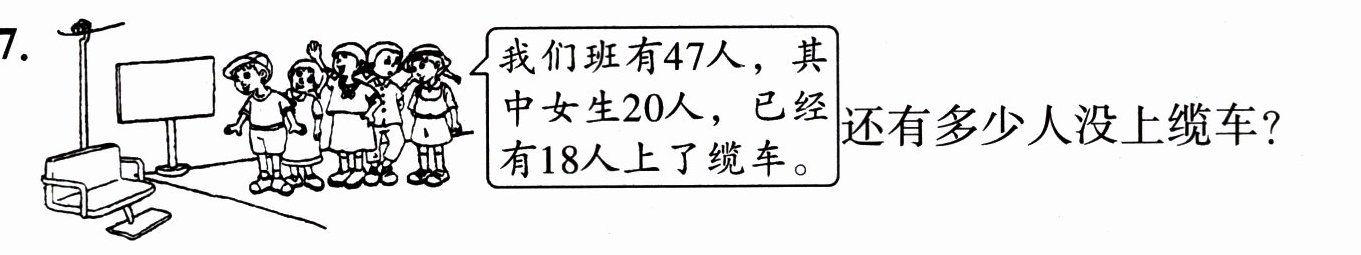 7.
我们班有47人，其
中女生20人，已经
有18人上了缆车。
还有多少人没上缆车？